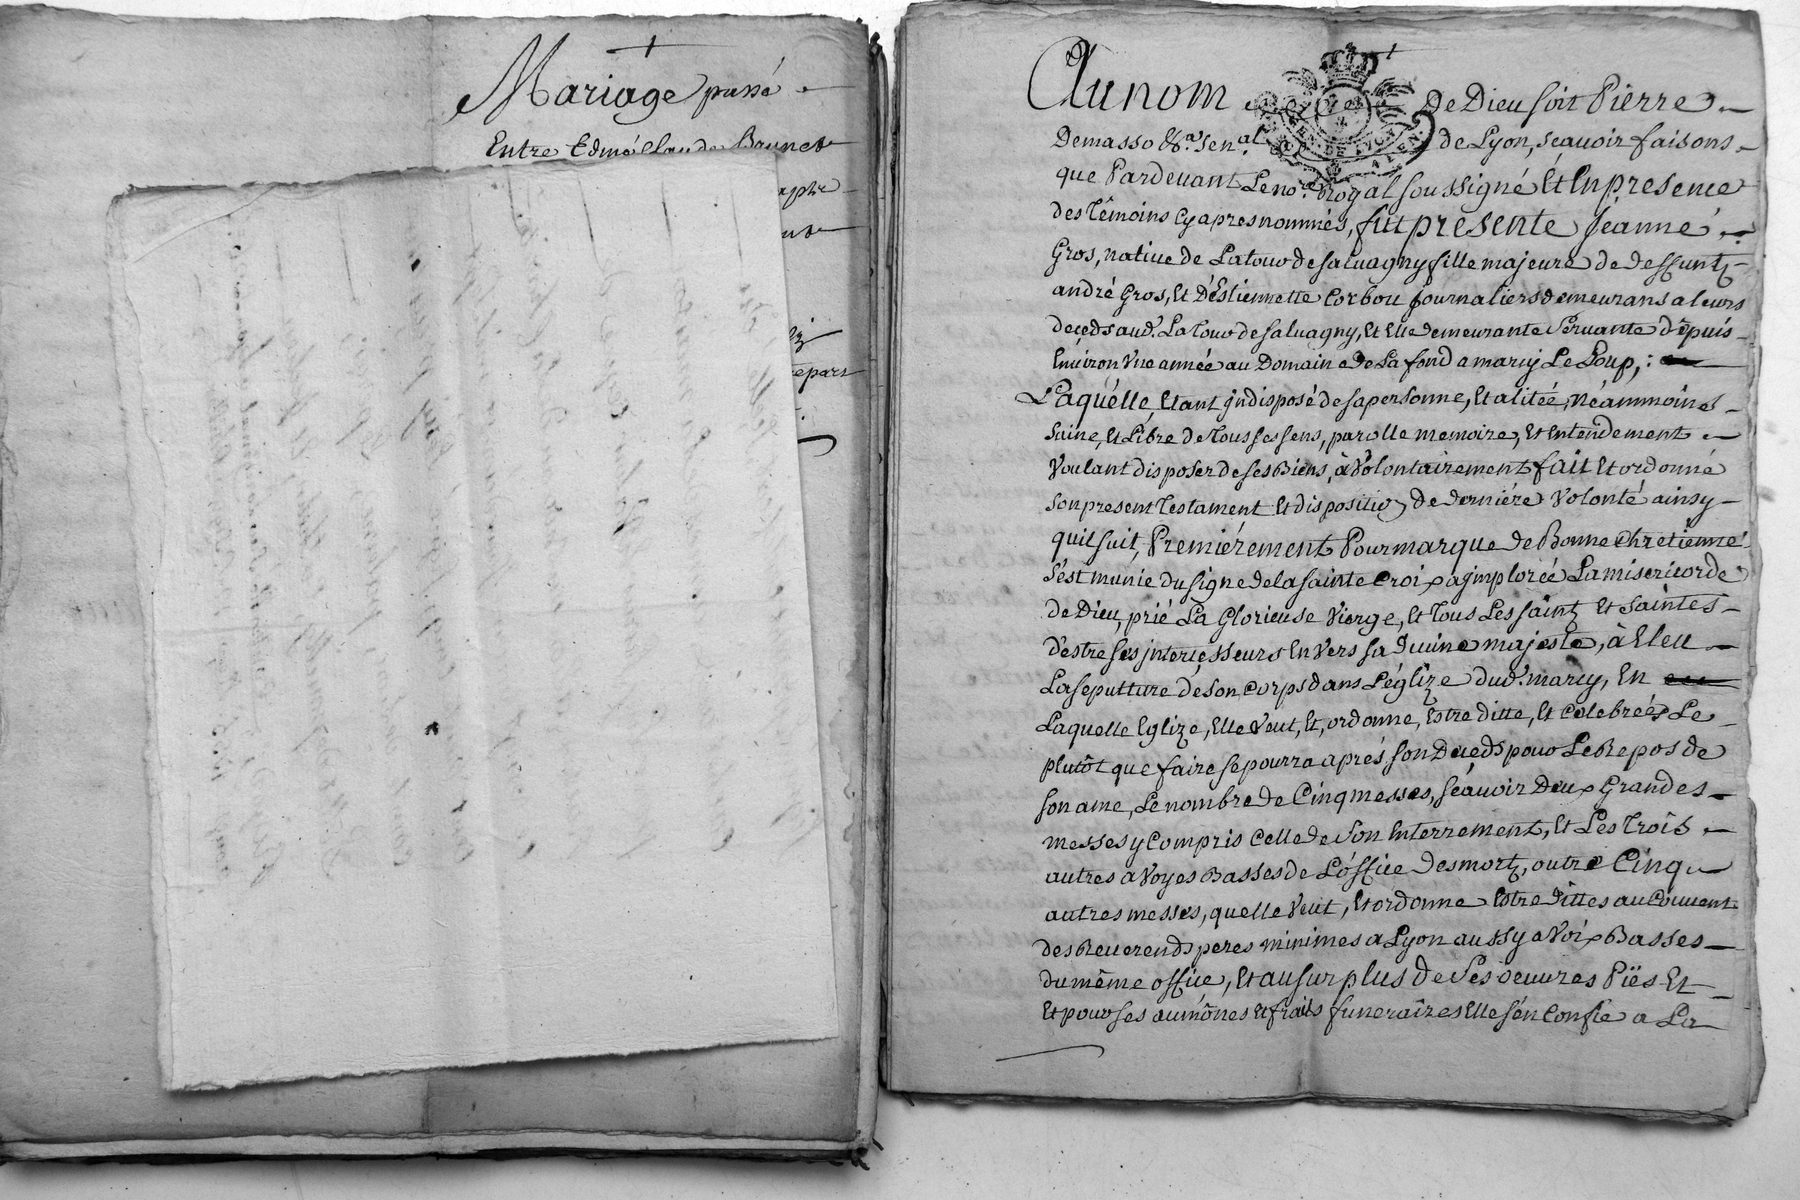 Mariage passé
Entre Edmé Claude Brunet
epars
Au nom de Dieu soit Pierre
Demasso &a. Senal. de Lyon, scavoir faisons
que Pardevant Le nore. Royal soussigné Et En presence
des Témoins Cy apres nommés, fut presente Jeanne
Gros, native de La tour de salvagny fille majeure de deffuntz
andré Gros, Et D'Estiennette Corbou Journaliers demeurans a leurs
deceds aud. La tour de salvagny, Et Elle demeurante Servante dépuis
Environ Une année au Domaine De La fond a marcy Le Loup,
Laquélle, Etant jndisposé de sa personne, Et alitée, néammoins
saine, Et Libre de Tous ses sens, parolle memoire, Et Entendement
Voulant disposer de ses Biens, à Volontairement fait Et ordonné
son present Testament Et disposition de derniére Volonté ainsy
quil suit, Premiérement Pour marque de Bonne Chretienne
s'est munie du signe de la sainte Croix a jmplorée La misericorde
de Dieu, prié La Glorieuse Vierge, Et Tous Les saintz Et saintes
d'estre ses jntercesseurs Envers sa divine majesté, à Eleu
La sepulture dé son corps dans L'églize dud. marcy, En
Laquelle Eglize, Elle Veut, Et, ordonne, Estre ditte, Et Celebrées Le
plutôt que faire se pourra aprés son Deceds pour Le Repos de
son ame, Le nombre de Cinq messes, scavoir Deux Grandes
messes y Compris Celle de Son Enterrement, Et Les Trois
autres a Voyes Basses de L'office Des mortz, outre Cinq
autres messes, quelle Veut, Et ordonne Estre Dittes au Couvent
des Reverends peres minimes a Lyon aussy a Voix Basses
du même office, Et au surplus de Ses oeuvres Piës Et
Et pour ses aumônes et frais funeraires Elle s'en Confie a La